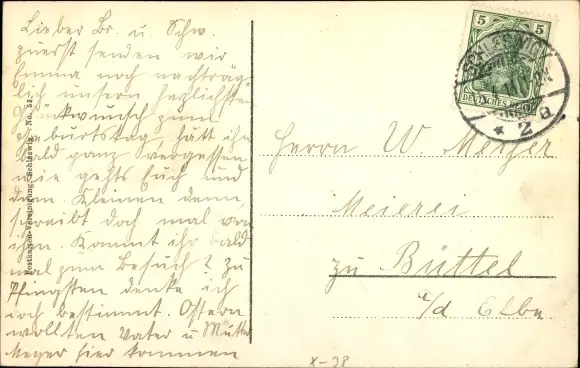 Lieber Br. u. Schw.
zuerst senden wir
Emma noch nachträg-
lich unsern herzlichsten
Glückwunsch zum
Geburtstag, hätt ihn
bald ganz vergessen
wie gehts Euch und
den Kleinen denn,
schreibt doch mal von
ihnen. Kommt ihr bald
mal zum Besuch? Zu
Pfingsten denke ich
doch bestimmt. Ostern
wollten Vater u Mutter
Meyer hier kommen
Postkarten-Vereinigung, Schleswig No. 53
5 5
DEUTSCHES REICH
SCHLESWIG
* 2 a
Herrn W. Meyer
Meierei
zu Büttel
a/d Elbe
X-38